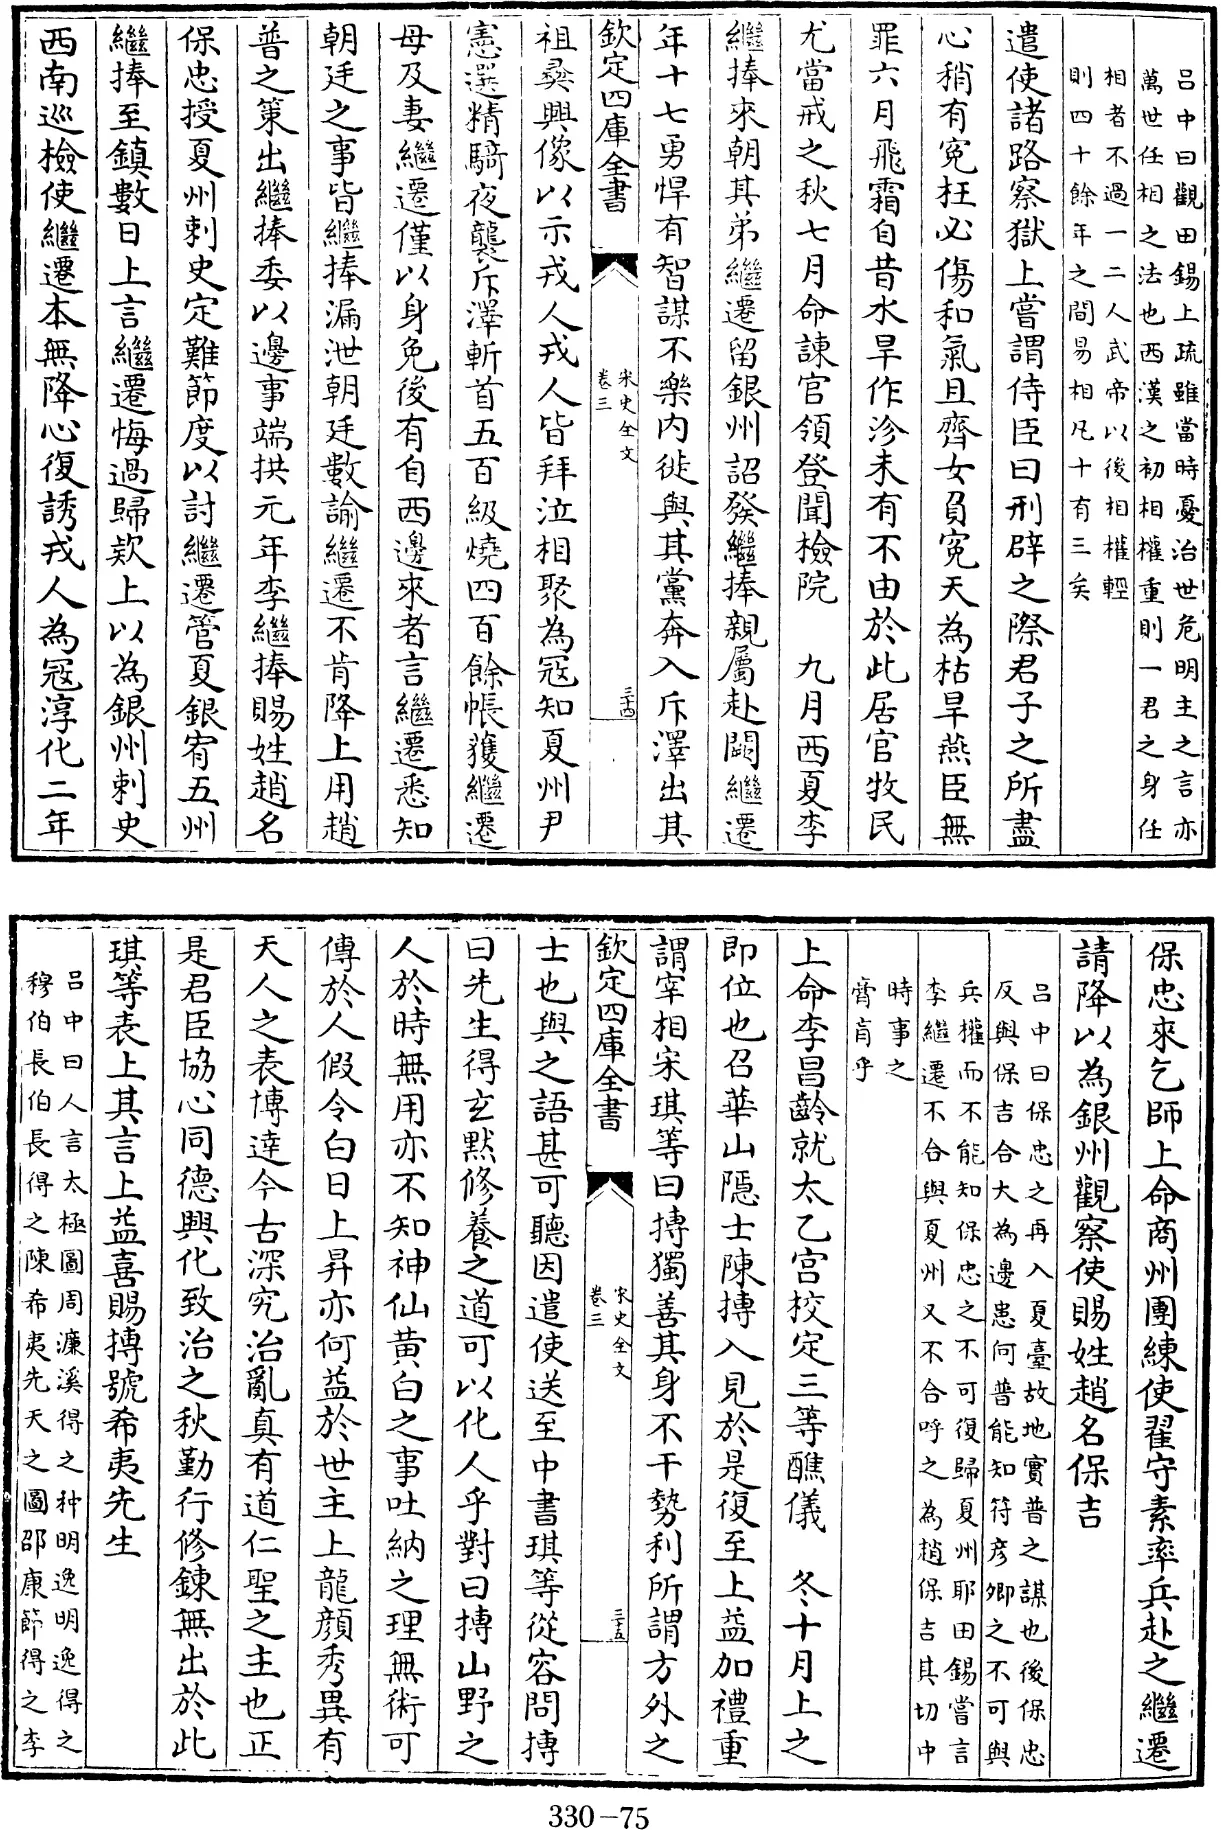 呂中曰觀田錫上疏雖當時憂治世危明主之言亦
萬世任相之法也西漢之初相權重則一君之身任
相者不過一二人武帝以後相權輕
則四十餘年之間易相凡十有三矣
遣使諸路察獄上嘗謂侍臣曰刑辟之際君子之所盡
心稍有寃枉必傷和氣且齊女負寃天為枯旱燕臣無
罪六月飛霜自昔水旱作沴未有不由於此居官牧民
尤當戒之秋七月命諫官領登聞檢院　九月西夏李
繼捧來朝其弟繼遷留銀州詔發繼捧親屬赴闕繼遷
年十七勇悍有智謀不樂内徙與其黨奔入斥澤出其
欽定四庫全書
宋史全文
卷三
三十四
祖彜興像以示戎人戎人皆拜泣相聚為冦知夏州尹
憲選精騎夜襲斥澤斬首五百級燒四百餘帳獲繼遷
母及妻繼遷僅以身免後有自西邊來者言繼遷悉知
朝廷之事皆繼捧漏泄朝廷數諭繼遷不肯降上用趙
普之策出繼捧委以邊事端拱元年李繼捧賜姓趙名
保忠授夏州刺史定難節度以討繼遷管夏銀宥五州
繼捧至鎮數日上言繼遷悔過歸欵上以為銀州刺史
西南巡檢使繼遷本無降心復誘戎人為冦淳化二年
保忠來乞師上命商州團練使翟守素率兵赴之繼遷
請降以為銀州觀察使賜姓趙名保吉
呂中曰保忠之再入夏臺故地實普之謀也後保忠
反與保吉合大為邊患何普能知符彦卿之不可與
兵權而不能知保忠之不可復歸夏州耶田錫嘗言
李繼遷不合與夏州又不合呼之為趙保吉其切中
時事之
膏肓乎
上命李昌齡就太乙宫校定三等醮儀　冬十月上之
即位也召華山隠士陳摶入見於是復至上益加禮重
謂宰相宋琪等曰摶獨善其身不干勢利所謂方外之
欽定四庫全書
宋史全文
卷三
三十五
士也與之語甚可聽因遣使送至中書琪等從容問摶
曰先生得玄默修養之道可以化人乎對曰摶山野之
人於時無用亦不知神仙黄白之事吐納之理無術可
傳於人假令白日上昇亦何益於世主上龍顔秀異有
天人之表博達今古深究治亂真有道仁聖之主也正
是君臣協心同德興化致治之秋勤行修鍊無出於此
琪等表上其言上益喜賜摶號希夷先生
呂中曰人言太極圖周濂溪得之种明逸明逸得之
穆伯長伯長得之陳希夷先天之圖邵康節得之李
330-75